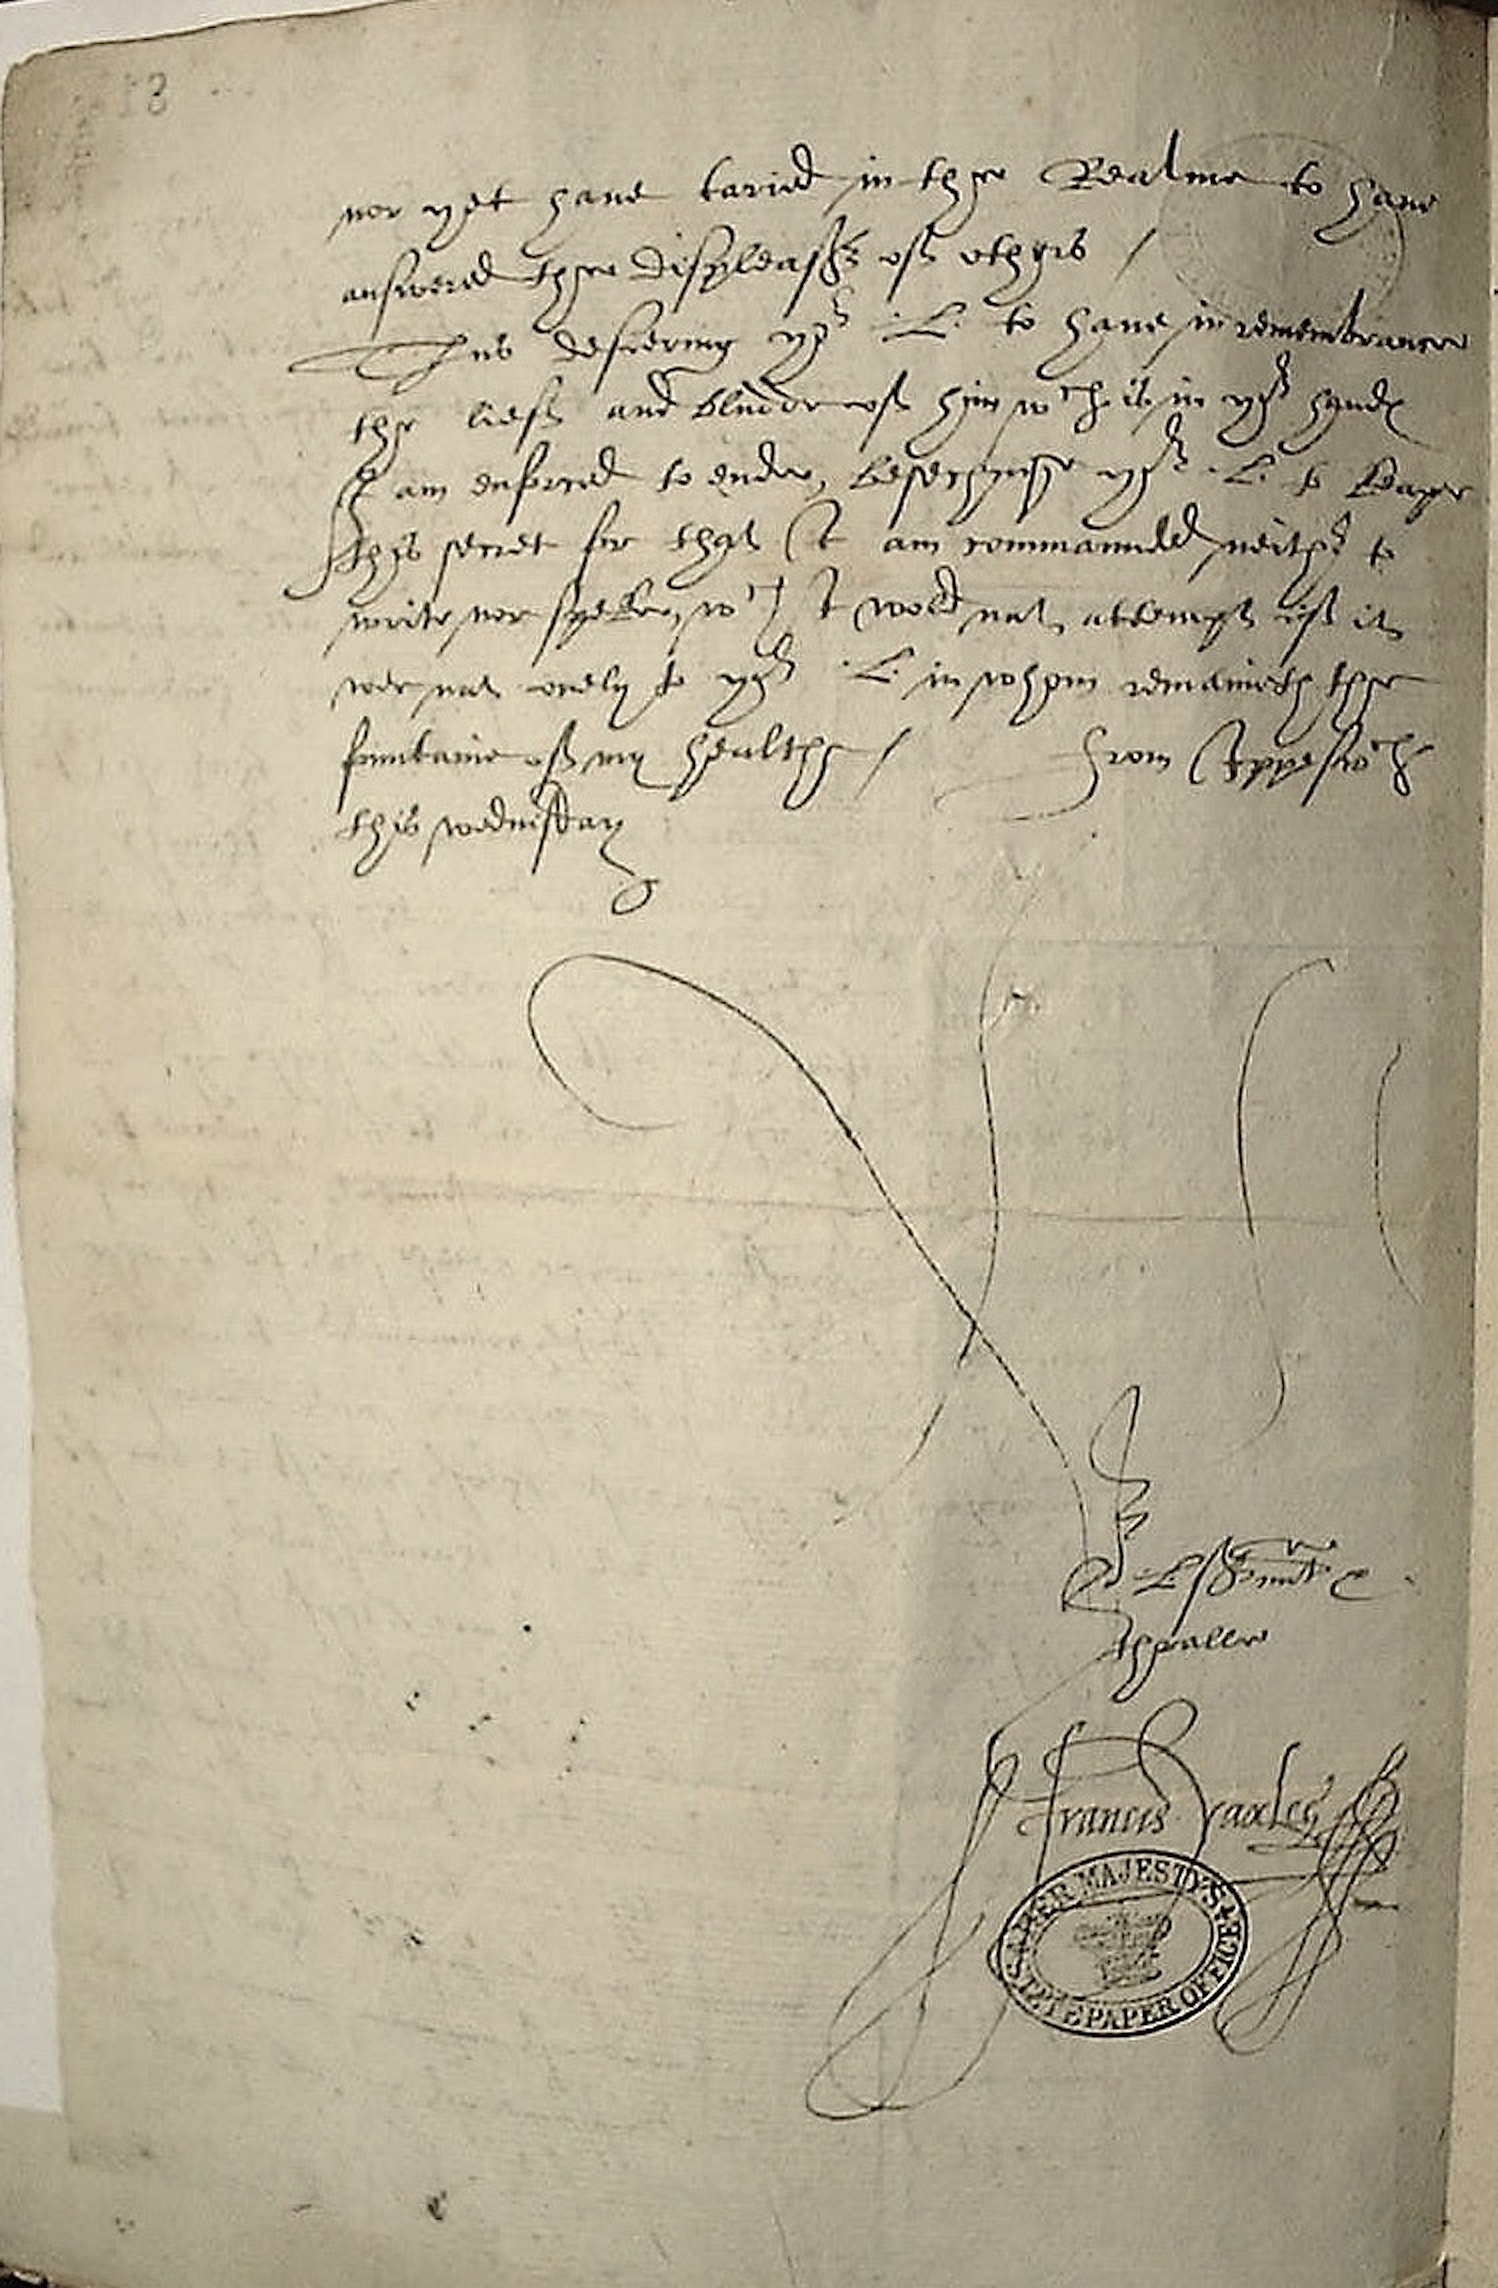 nor yet have taried in the Realme to have
answered the displeasʳˢ off othyrs /
Thus desiering yoʳ .L. to have in remembrance
the lieff and bludde off hym wᶜʰ is in yoʳ handꝭ
I am enforced to ende, besechynge yoʳ .L. to keape
thys secret for that I am commaunded neithʳ to
write nor speke, wᶜʰ I wold nat attempt iff it
wer nat onely to yoʳ .L. in whom remaineth the
fountaine off my healthe / From Ippeswᶜʰ
this wednisday
yoʳ .L. ſʳvnt
Francis Yaxley
HER MAJESTY'S
STATE PAPER OFFICE